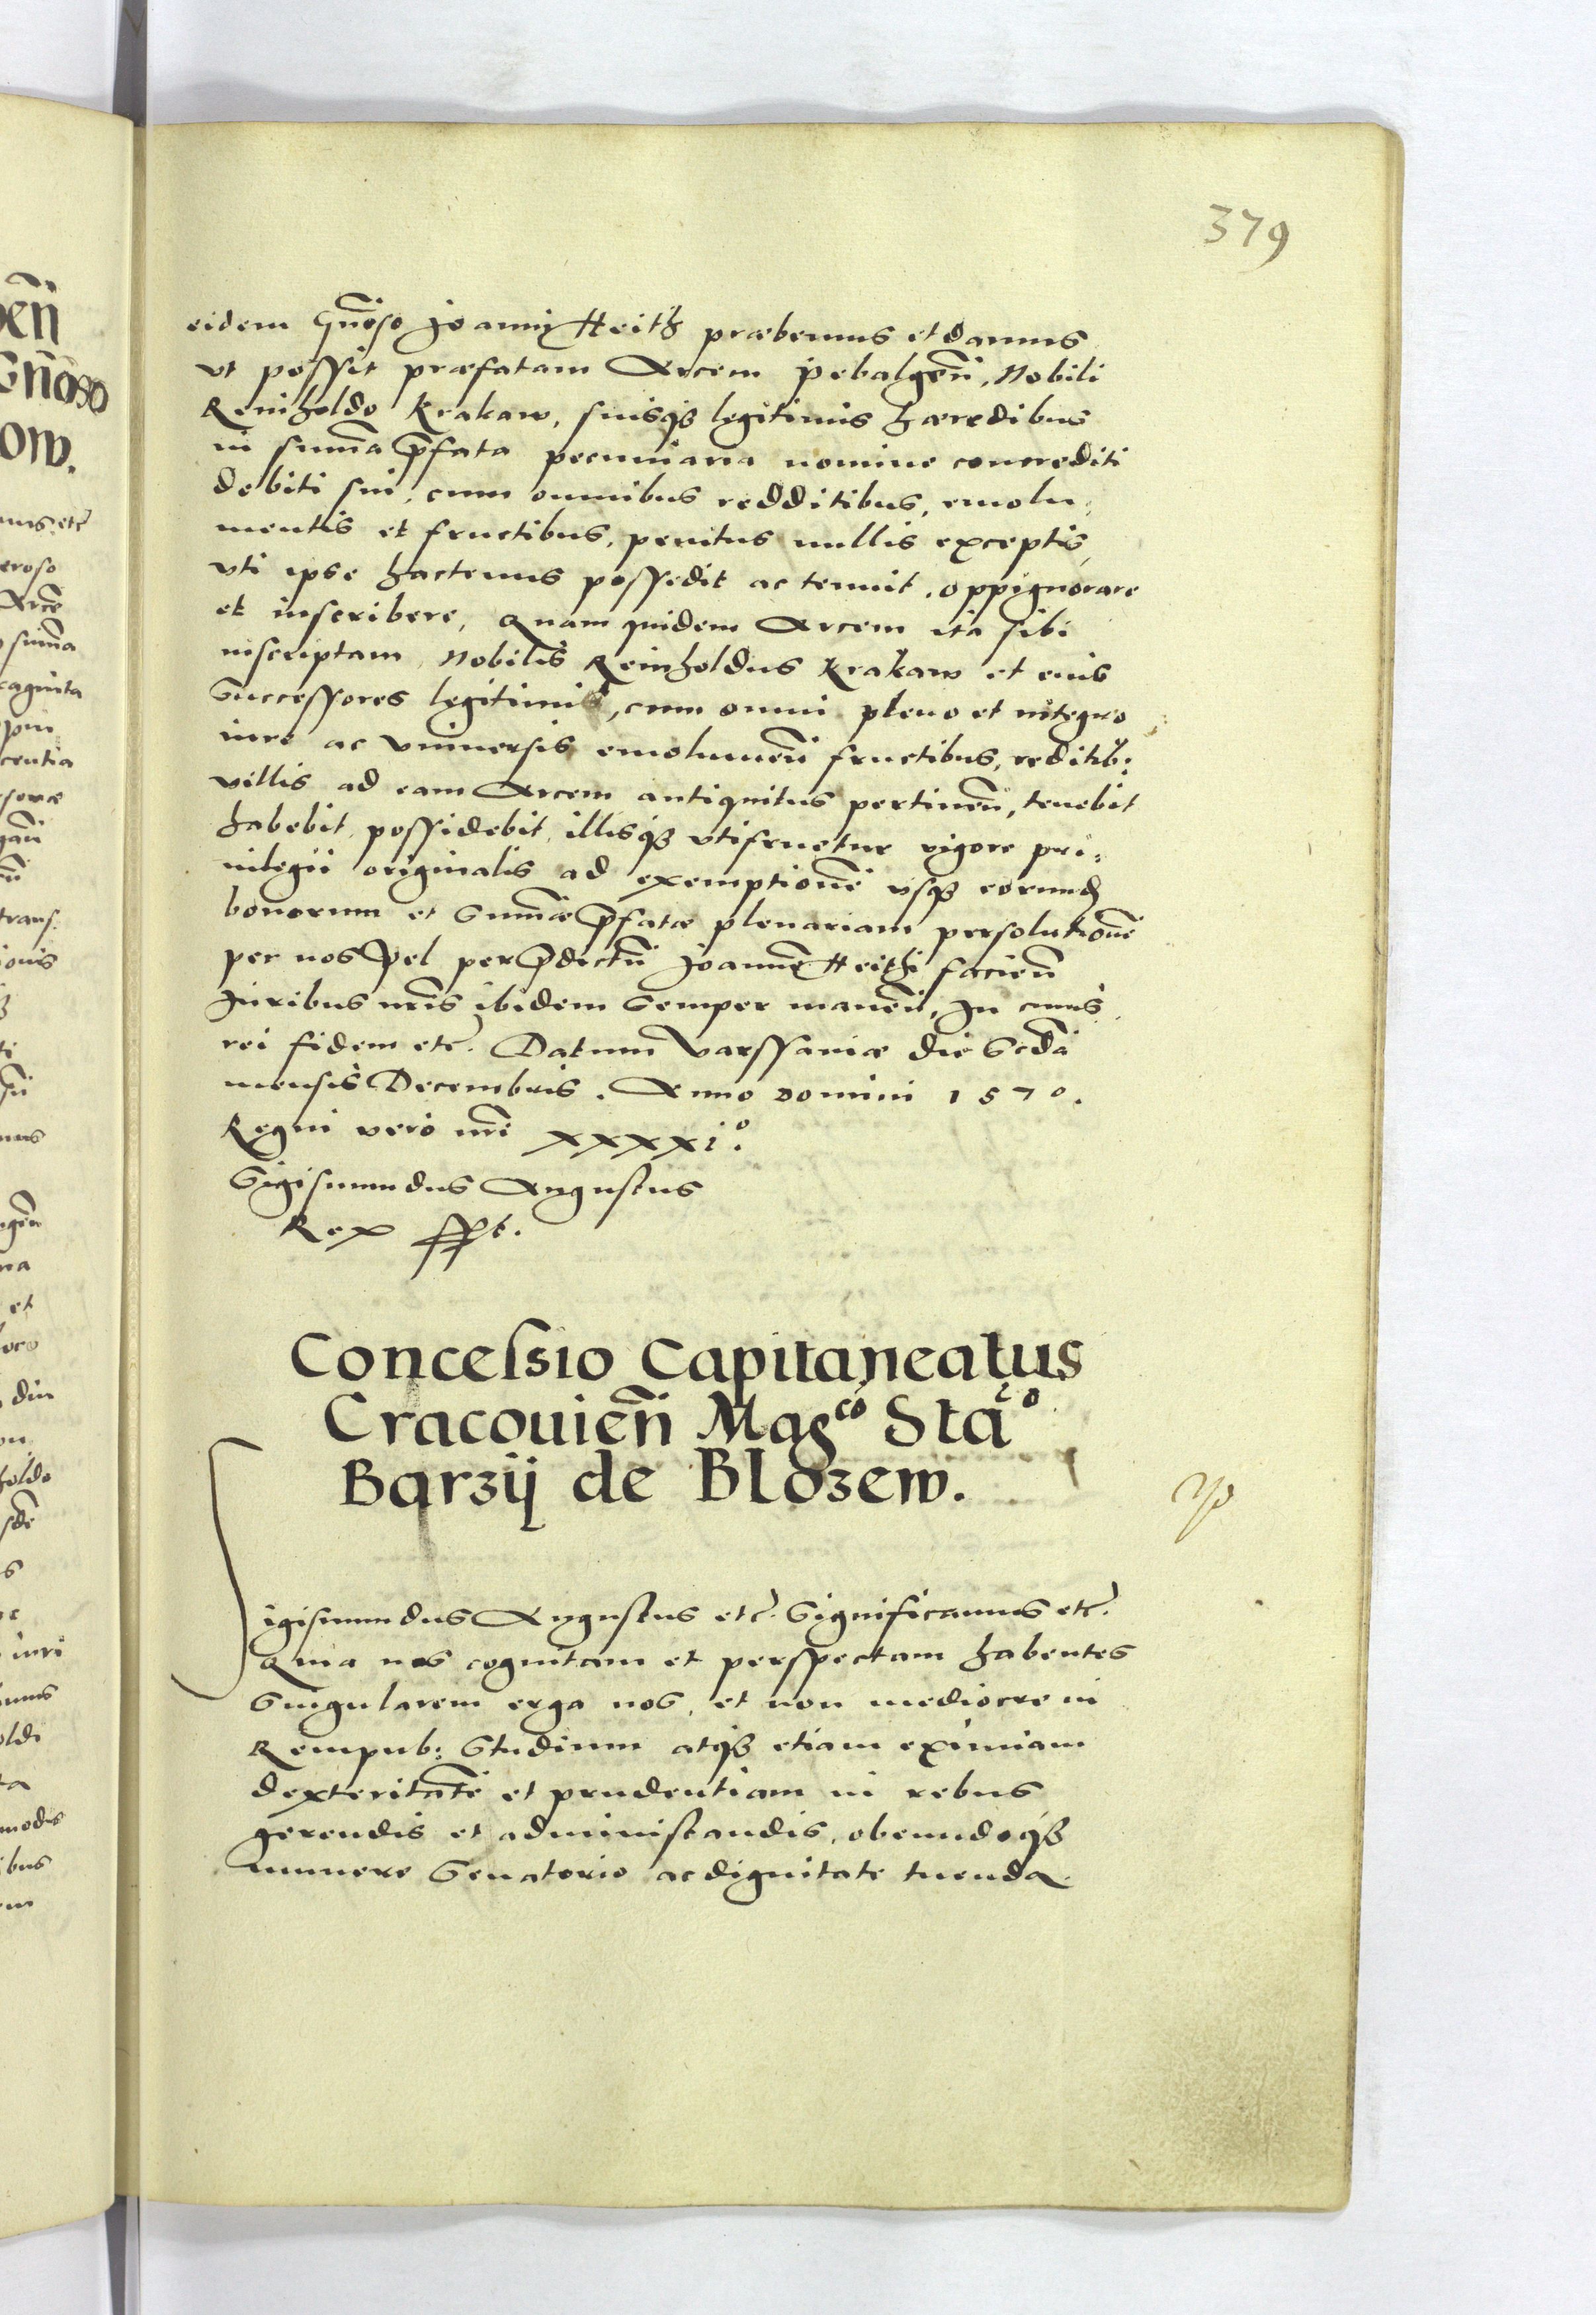 379
eidem Gn̄oso Joanni Heith præbemus et damus
vt possit præfatam Arcem Pebalgen̄, Nobili
Reinholdo Krakaw, suisq₃ legitimis hæredibus
in sum̄a p̄fata pecuniaria nomine concrediti
debiti sui, cum omnibus redditibus, emolu„
mentis et fructibus, penitus nullis exceptis,
vti ipse hactenus possedit ac tenuit, oppignorare
et inscribere, Quam quidem Arcem ita sibi
inscriptam, Nobilis Reinholdus Krakaw et eius
Successores legitimi, cum omni pleno et integro
iure ac vniuersis emolumen̄ fructibus, reditib:
villis ad eam Arcem antiquitus pertinen̄, tenebit
habebit, possidebit, illisq₃ vtifruetur vigore pri„
uilegii originalis ad exemptionē vsq₃ eorund
bonorum et Sum̄æ p̄fatæ plenariam persolutionē
per nos vel per p̄dictū Joannē Heith facien̄
Juribus nr̄is ibidem semper manen̄, In cuius
rei fidem etc̄. Datum Varssauiæ die Scd̄a
mensis Decembris. Anno Domini 1570.
Regni vero nr̄i xxxxi°.
Sigismundus Augustus
Rex sspt.
Concessio Capitaneatus
Cracouien̄ Mag^co Sta^o
Barzij de Blozew.
Sigismundus Augustus etc̄. Significamus etc̄.
Quia nos cognitam et perspectam habentes
Singularem erga nos, et non mediocre in
Rempub: Studium atq₃ etiam eximiam
dexteritatē et prudentiam in rebus
gerendis et administandis, obeundoq₃
munere Senatorio ac dignitate tuenda.